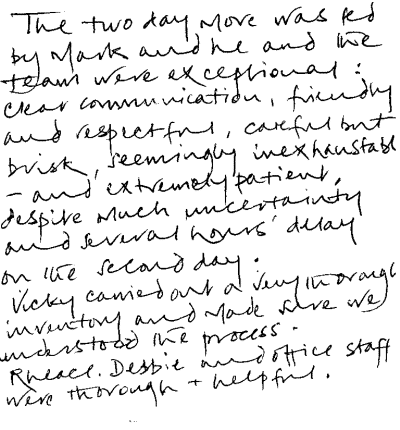 The two day move was led
by Mark and he and the
team were exceptional:
clear communication, friendly
and respectful, careful but
brisk, seemingly inexhaustabl
- and extremely patient,
despite much uncertainty
and several hours' delay
on the second day.
Vicky carried out a very thorough
inventory and made sure we
understood the process.
Debbie and office staff
were thorough + helpful.